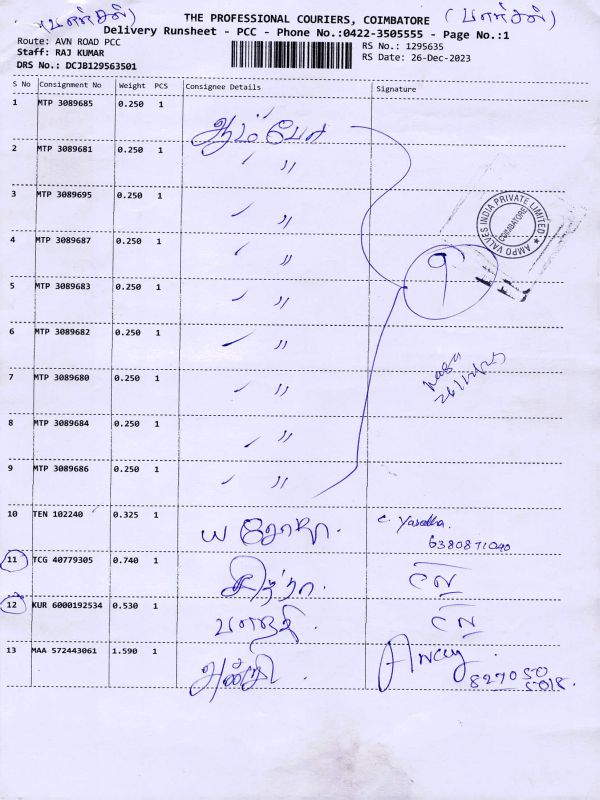 THE PROFESSIONAL COURIERS, COIMBATORE
Delivery Runsheet - PCC - Phone No.:0422-3505555 - Page No.:1
Route: AVN ROAD PCC
Staff: RAJ KUMAR
DRS No.: DCJB129563501
RS No.: 1295635
RS Date: 26-Dec-2023
S No Consignment No Weight PCS Consignee Details Signature
1 MTP 3089685 0.250 1 ஆம்போ
2 MTP 3089681 0.250 1 〃
3 MTP 3089695 0.250 1 〃
4 MTP 3089687 0.250 1 〃
5 MTP 3089683 0.250 1 〃
6 MTP 3089682 0.250 1 〃
7 MTP 3089680 0.250 1 〃
8 MTP 3089684 0.250 1 〃
9 MTP 3089686 0.250 1 〃
9
AMPO VALVES INDIA PRIVATE LIMITED
COIMBATORE
10 TEN 102240 0.325 1
6380871090
11 TCG 40779305 0.740 1 சித்ரா
12 KUR 6000192534 0.530 1
13 MAA 572443061 1.590 1
827050
5018